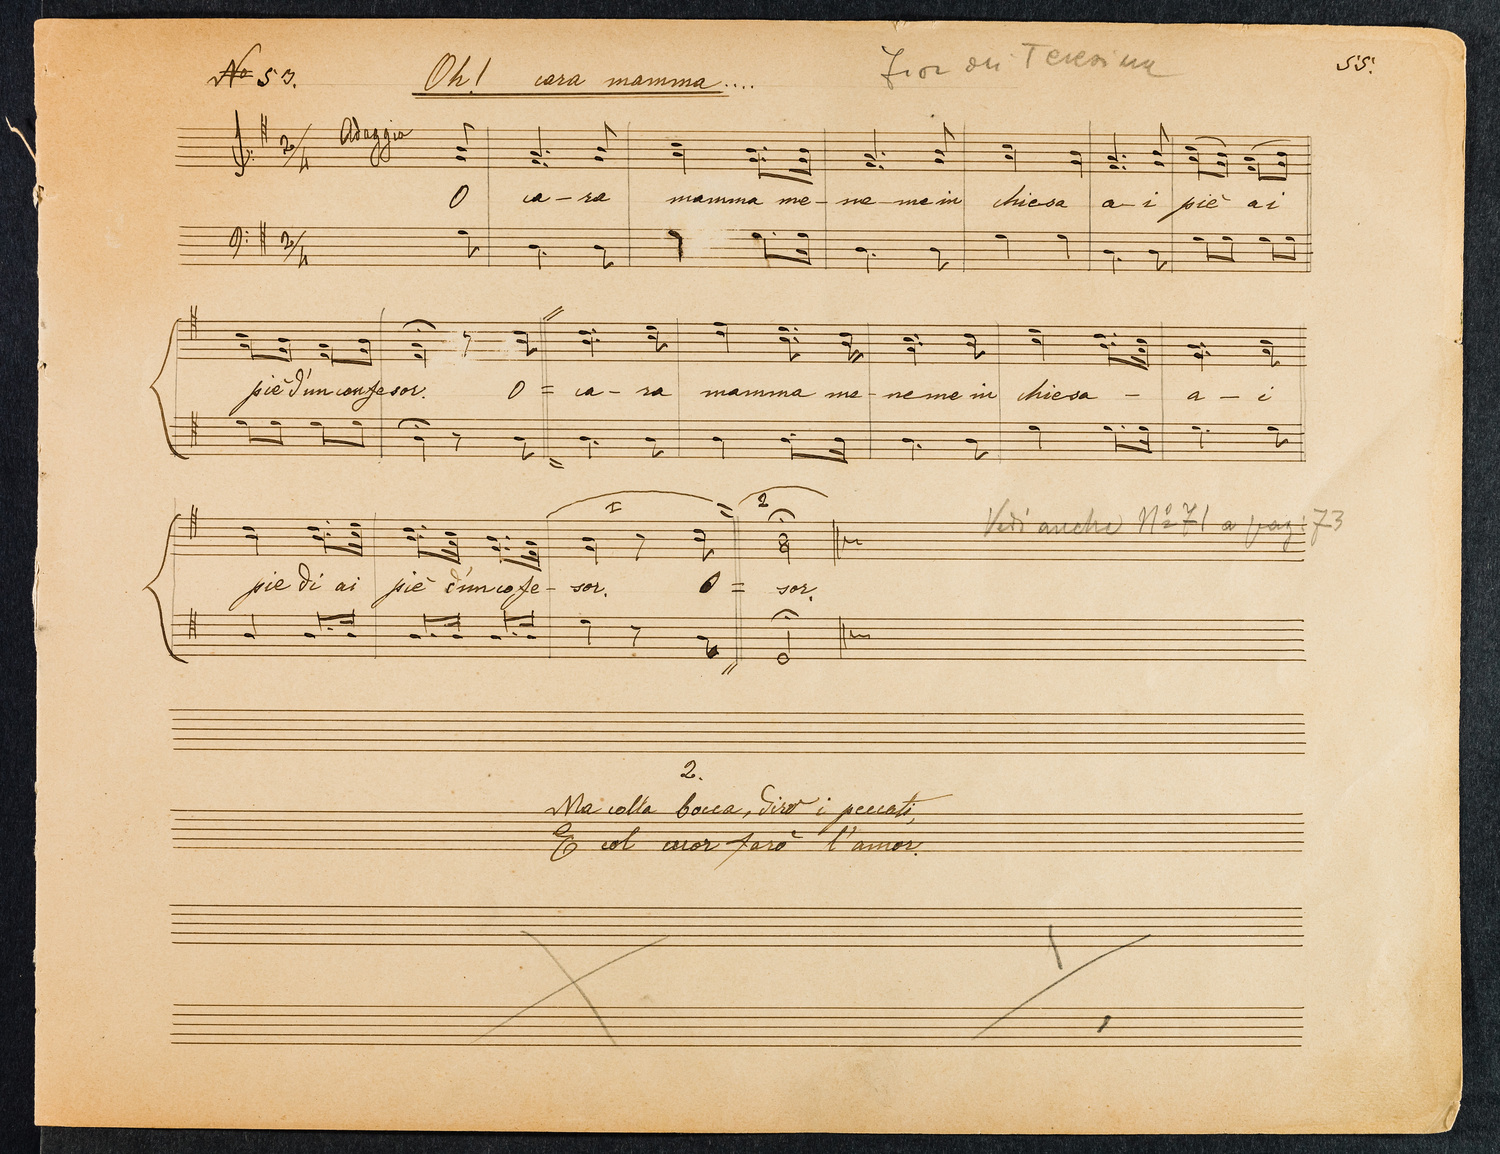 No 53. Oh! cara mamma.... Fior di Teresina 55.
Adaggio
2/4
O ca-ra mamma me-ne-me in chiesa a-i piè ai
2/4
piè d'un confesor. O = ca-ra mamma me-ne me in chiesa - a-i
I 2
Vedi anche No 71 a pag: 73
pie di ai piè d'un cofe-sor. O = sor.
2.
Ma colla bocca, dirò i peccati,
E col cuor farò l'amor.